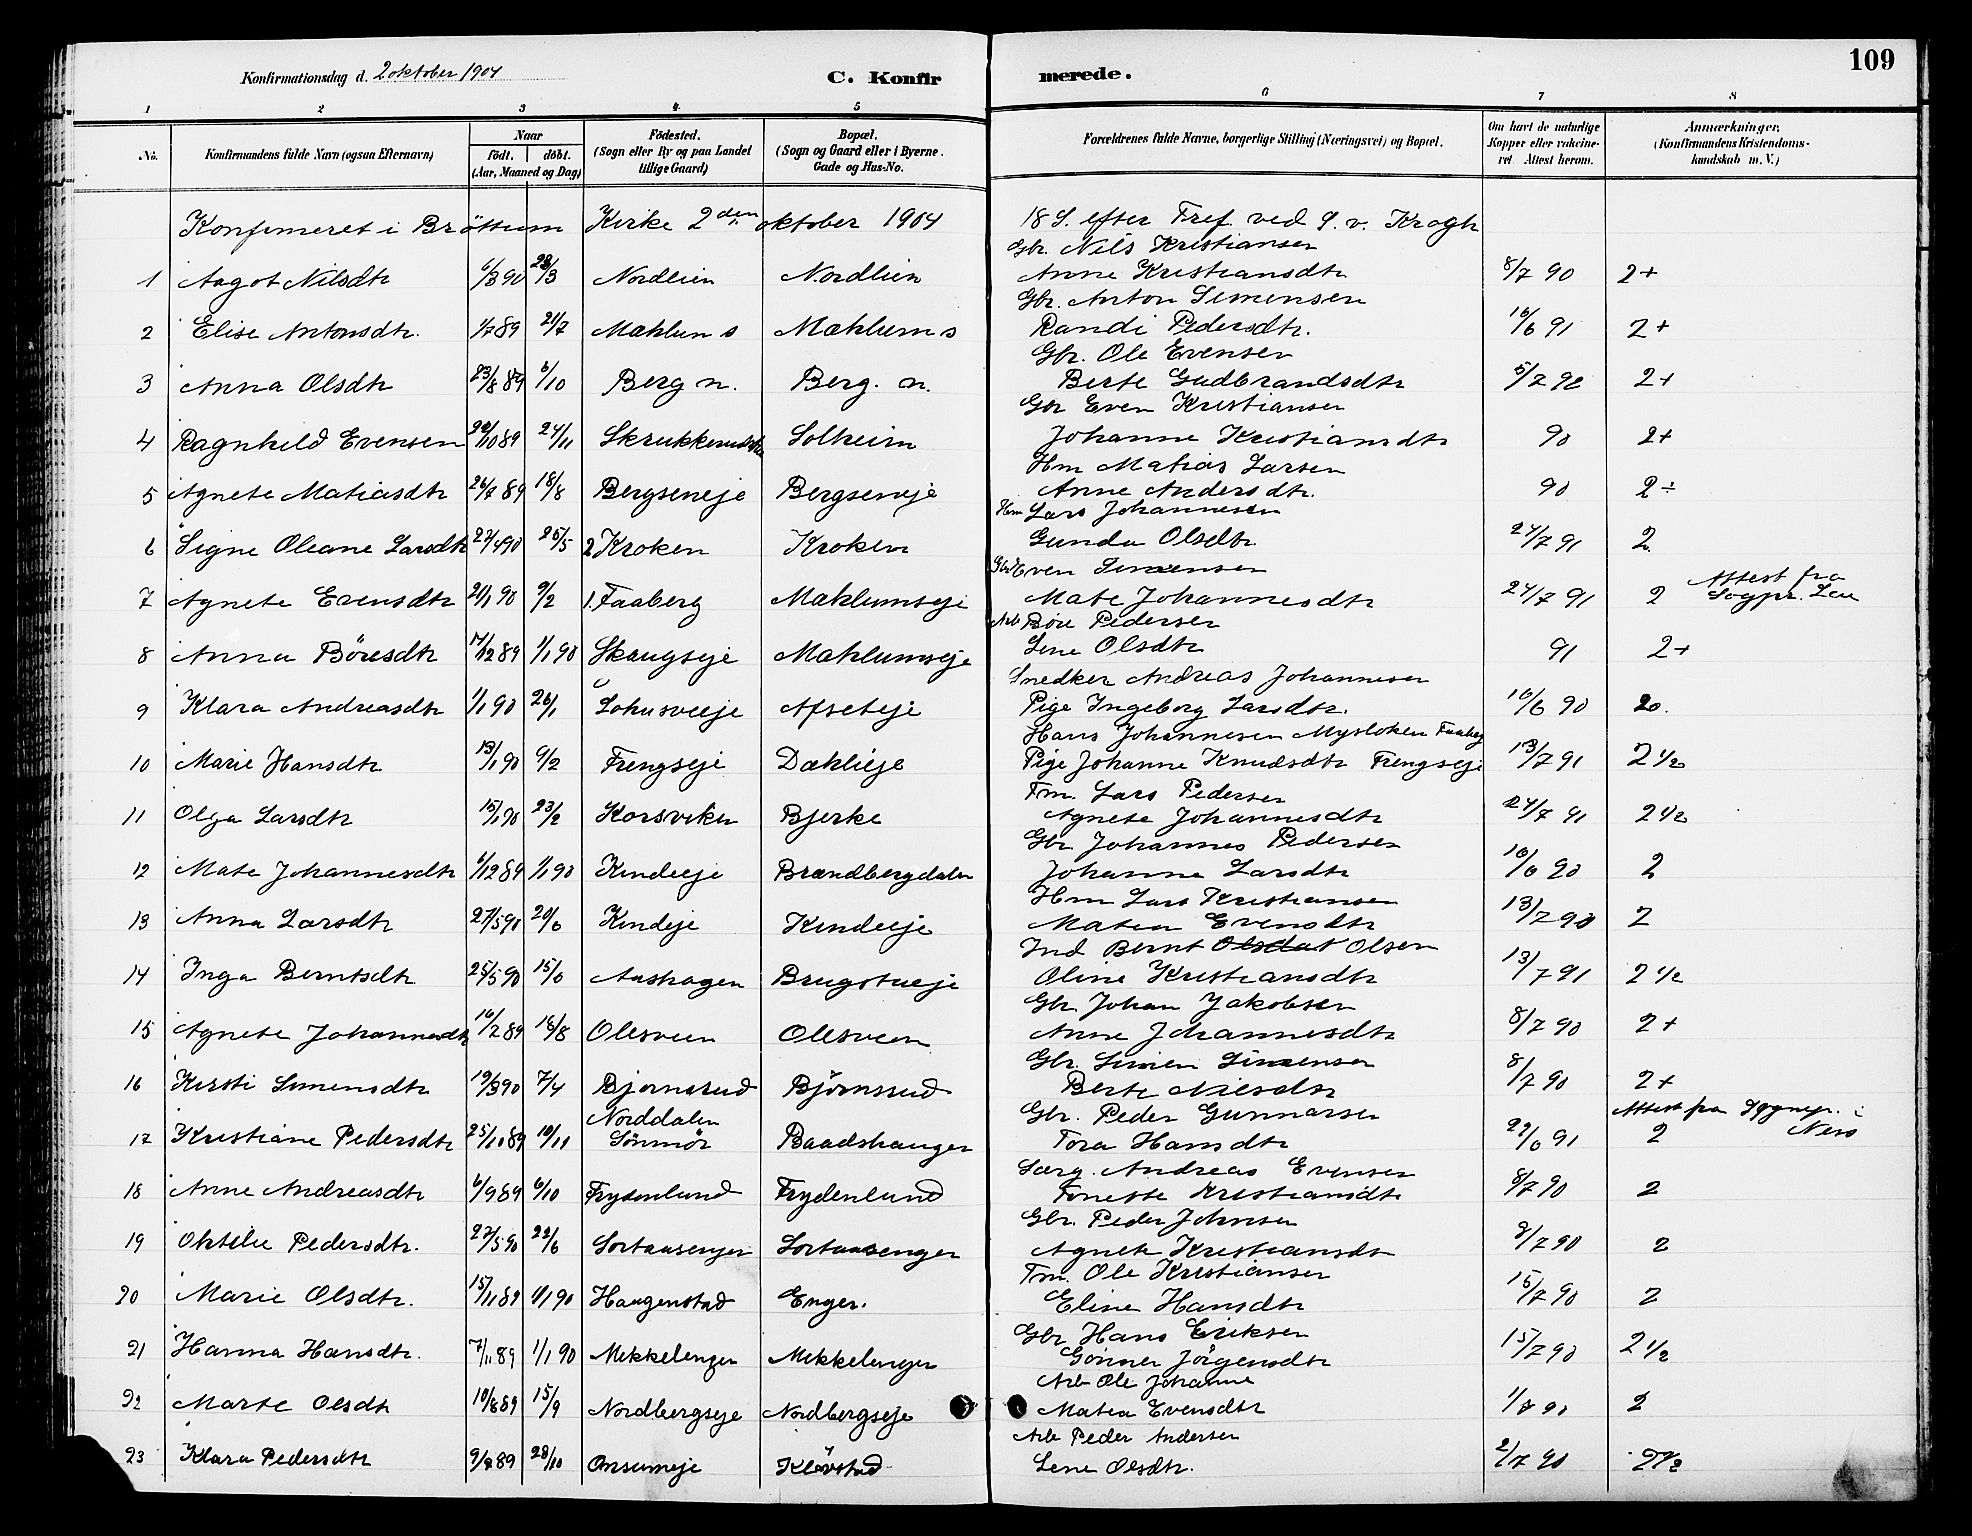 109
Konfirmationsdag d. 2 oktober 1904 C. Konfirmerede.
1 2 3 4 5 6 7 8
No. Konfirmandens fulde Navn (ogsaa Efternavn) Naar födt. döbt. (Aar, Maaned og Dag) Födested. (Sogn eller By og paa Landet tillige Gaard) Bopæl. (Sogn og Gaard eller i Byerne Gade og Hus-No. Forældrenes fulde Navne, borgerlige Stilling (Næringsvei) og Bopæl. Om havt de naturlige Kopper eller vaccineret. Attest herom. Anmærkninger. (Konfirmandens Kristendomskundskab m. V.)
Konfirmeret i Bröttum Kirke 2den oktober 1904 18 S. efter Tref. ved S. v. Krogh
Gbr. Nils Kristiansen
1 Aagot Nilsdtr 6/3 90 23/3 Nordlien Nordlien Anne Kristiansdtr 8/7 90 2+
Gbr. Anton Simensen
2 Elise Antonsdtr. 1/7 89 21/7 Mæhlum s Mæhlum s Randi Pedersdtr. 16/6 91 2+
Gbr. Ole Evensen
3 Anna Olsdtr 23/8 89 6/10 Berg n. Berg. n. Berte Gudbrandsdtr 5/7 92 2+
Gbr Even Kristiansen
4 Ragnhild Evensen 20/10 89 24/11 Solheim Johanne Kristiansdtr 90 2+
Hm Matias Larsen
5 Agnete Matiasdtr 26/7 89 18/8 Bergseneje Bergseneje Anne Andersdtr. 90 2÷
Hm Lars Johannesen
6 Signe Oleane Larsdtr 27/4 90 26/5 2 Kroken Kroken Gunda Olsdtr. 24/7 91 2
Even Simensen
7 Agnete Evensdtr 21/1 90 9/2 1. Faaberg Mæhlumseje Mate Johannesdtr 24/7 91 2 Attest fra Sogpr.
Arb Böre Pedersen
8 Anna Böresdtr 17/12 89 1/1 90 Skaugseje Mæhlumseje Lene Olsdtr 91 2+
Snedker Andreas Johannesen
9 Klara Andreasdtr 1/1 90 26/1 Lohusveeje Afseteje Pige Ingeborg Larsdtr. 16/6 90 20.
Hans Johannesen Mysloken Faaberg
10 Marie Hansdtr 13/1 90 9/2 Frengseje Dæhlieje Pige Johanne Knudsdtr Frengseje 13/7 91 2 1/2
Fm. Lars Pedersen
11 Olga Larsdtr 15/1 90 23/2 Korsviken Bjerke Agnete Johannesdtr 24/7 91 2 1/2
Gbr Johannes Pedersen
12 Mate Johannesdtr 6/12 89 1/1 90 Kindeeje Brændbergdalen Johanne Larsdtr 16/6 90 2
Hm Lars Kristiansen
13 Anna Larsdtr 27/5 90 20/6 Kindeje Kindeeje Matea Evensdtr 13/7 90 2
Ind Bernt Olsen
14 Inga Berntsdtr 25/5 90 15/6 Aashagen Brugstueje Oline Kristiansdtr 13/7 91 2 1/2
Gbr. Johan Jakobsen
15 Agnete Johannesdtr 16/7 89 18/8 Olesveen Olesveen Anne Johannesdtr 8/7 90 2+
Gbr. Simen Simensen
16 Kirsti Simensdtr 19/3 90 7/4 Bjørnsrud Bjørnsrud Berte Nilsdtr 8/7 90 2+
Norddalen Gbr. Peder Gunnarsen Attest fra Sognepr. i
17 Kristiane Pedersdtr 25/10 89 10/11 Sönmör Baadshaugen Tora Hansdtr 22/6 91 2 Nes
Sarg. Andreas Evensen
18 Anne Andreasdtr 6/9 89 6/10 Frydenlund Frydenlund Tonette Kristiansdtr 8/7 90 2
Gbr. Peder Johnsen
19 Oktilie Pedersdtr. 27/5 90 22/6 Sortaasenger Sortaasenger Agnete Kristiansdtr 8/7 90 2
Fm. Ole Kristiansen
20 Marie Olsdtr. 15/11 89 1/1 90 Haugenstad Enger. Eline Hansdtr 15/7 90 2
Gbr Hans Eriksen
21 Hanna Hansdtr. 7/11 89 1/1 90 Mikkelenger Mikkelenger Gönner Jörgensdtr 15/7 90 2 1/2
Arb Ole Johanne
22 Marte Olsdtr 10/8 89 15/9 Nordbergseje Nordbergseje Matea Evensdtr 1/7 90 2
Arb Peder Andersen
23 Klara Pedersdtr 9/7 89 28/10 Onsumeje Klövstad Lene Olsdtr. 2/7 90 2 1/2